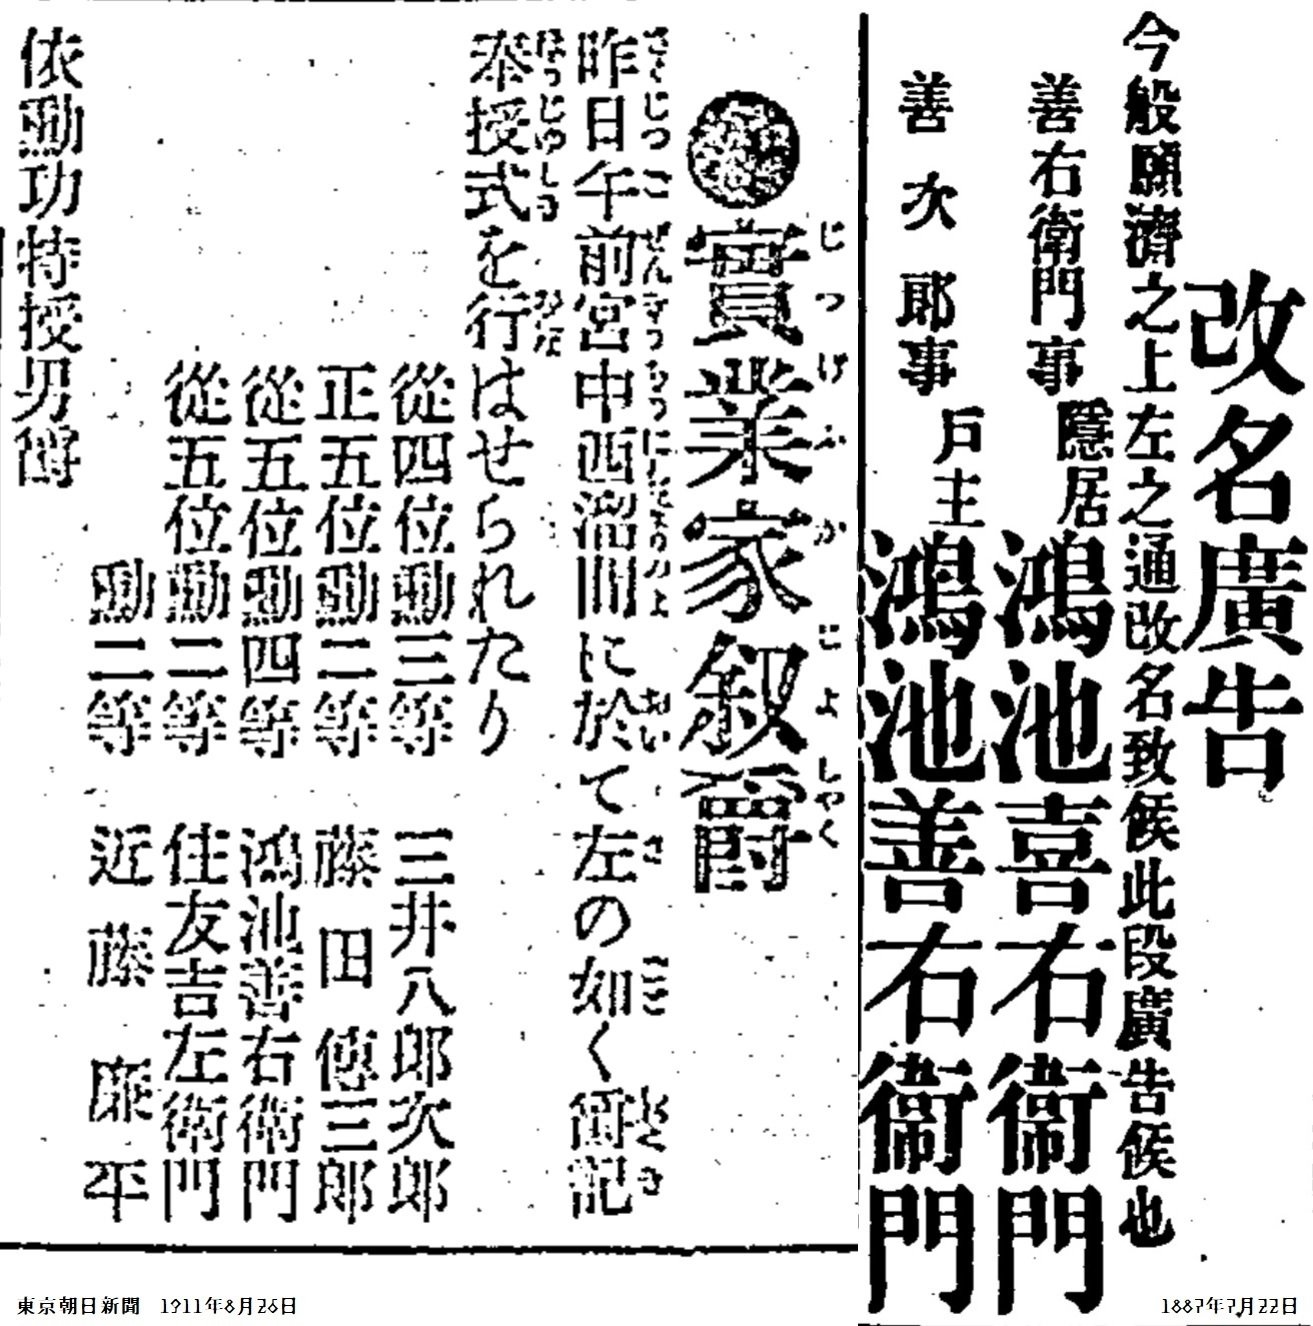 改名廣告
今般願濟之上左之通改名致候此段廣告候也
善右衛門事 隱居 鴻池喜右衞門
善次郎事 戸主 鴻池善右衞門
1887年7月22日
●實業家叙爵
じつげふかじよしやく
昨日午前宮中西溜間に於て左の如く御記
奉授式を行はせられたり
從四位勳三等 三井八郎次郎
正五位勳二等 藤田傳三郎
從五位勳四等 鴻池善右衛門
從五位勳二等 住友吉左衛門
勳二等 近藤廉平
依勳功特授男爵
東京朝日新聞 1911年8月26日